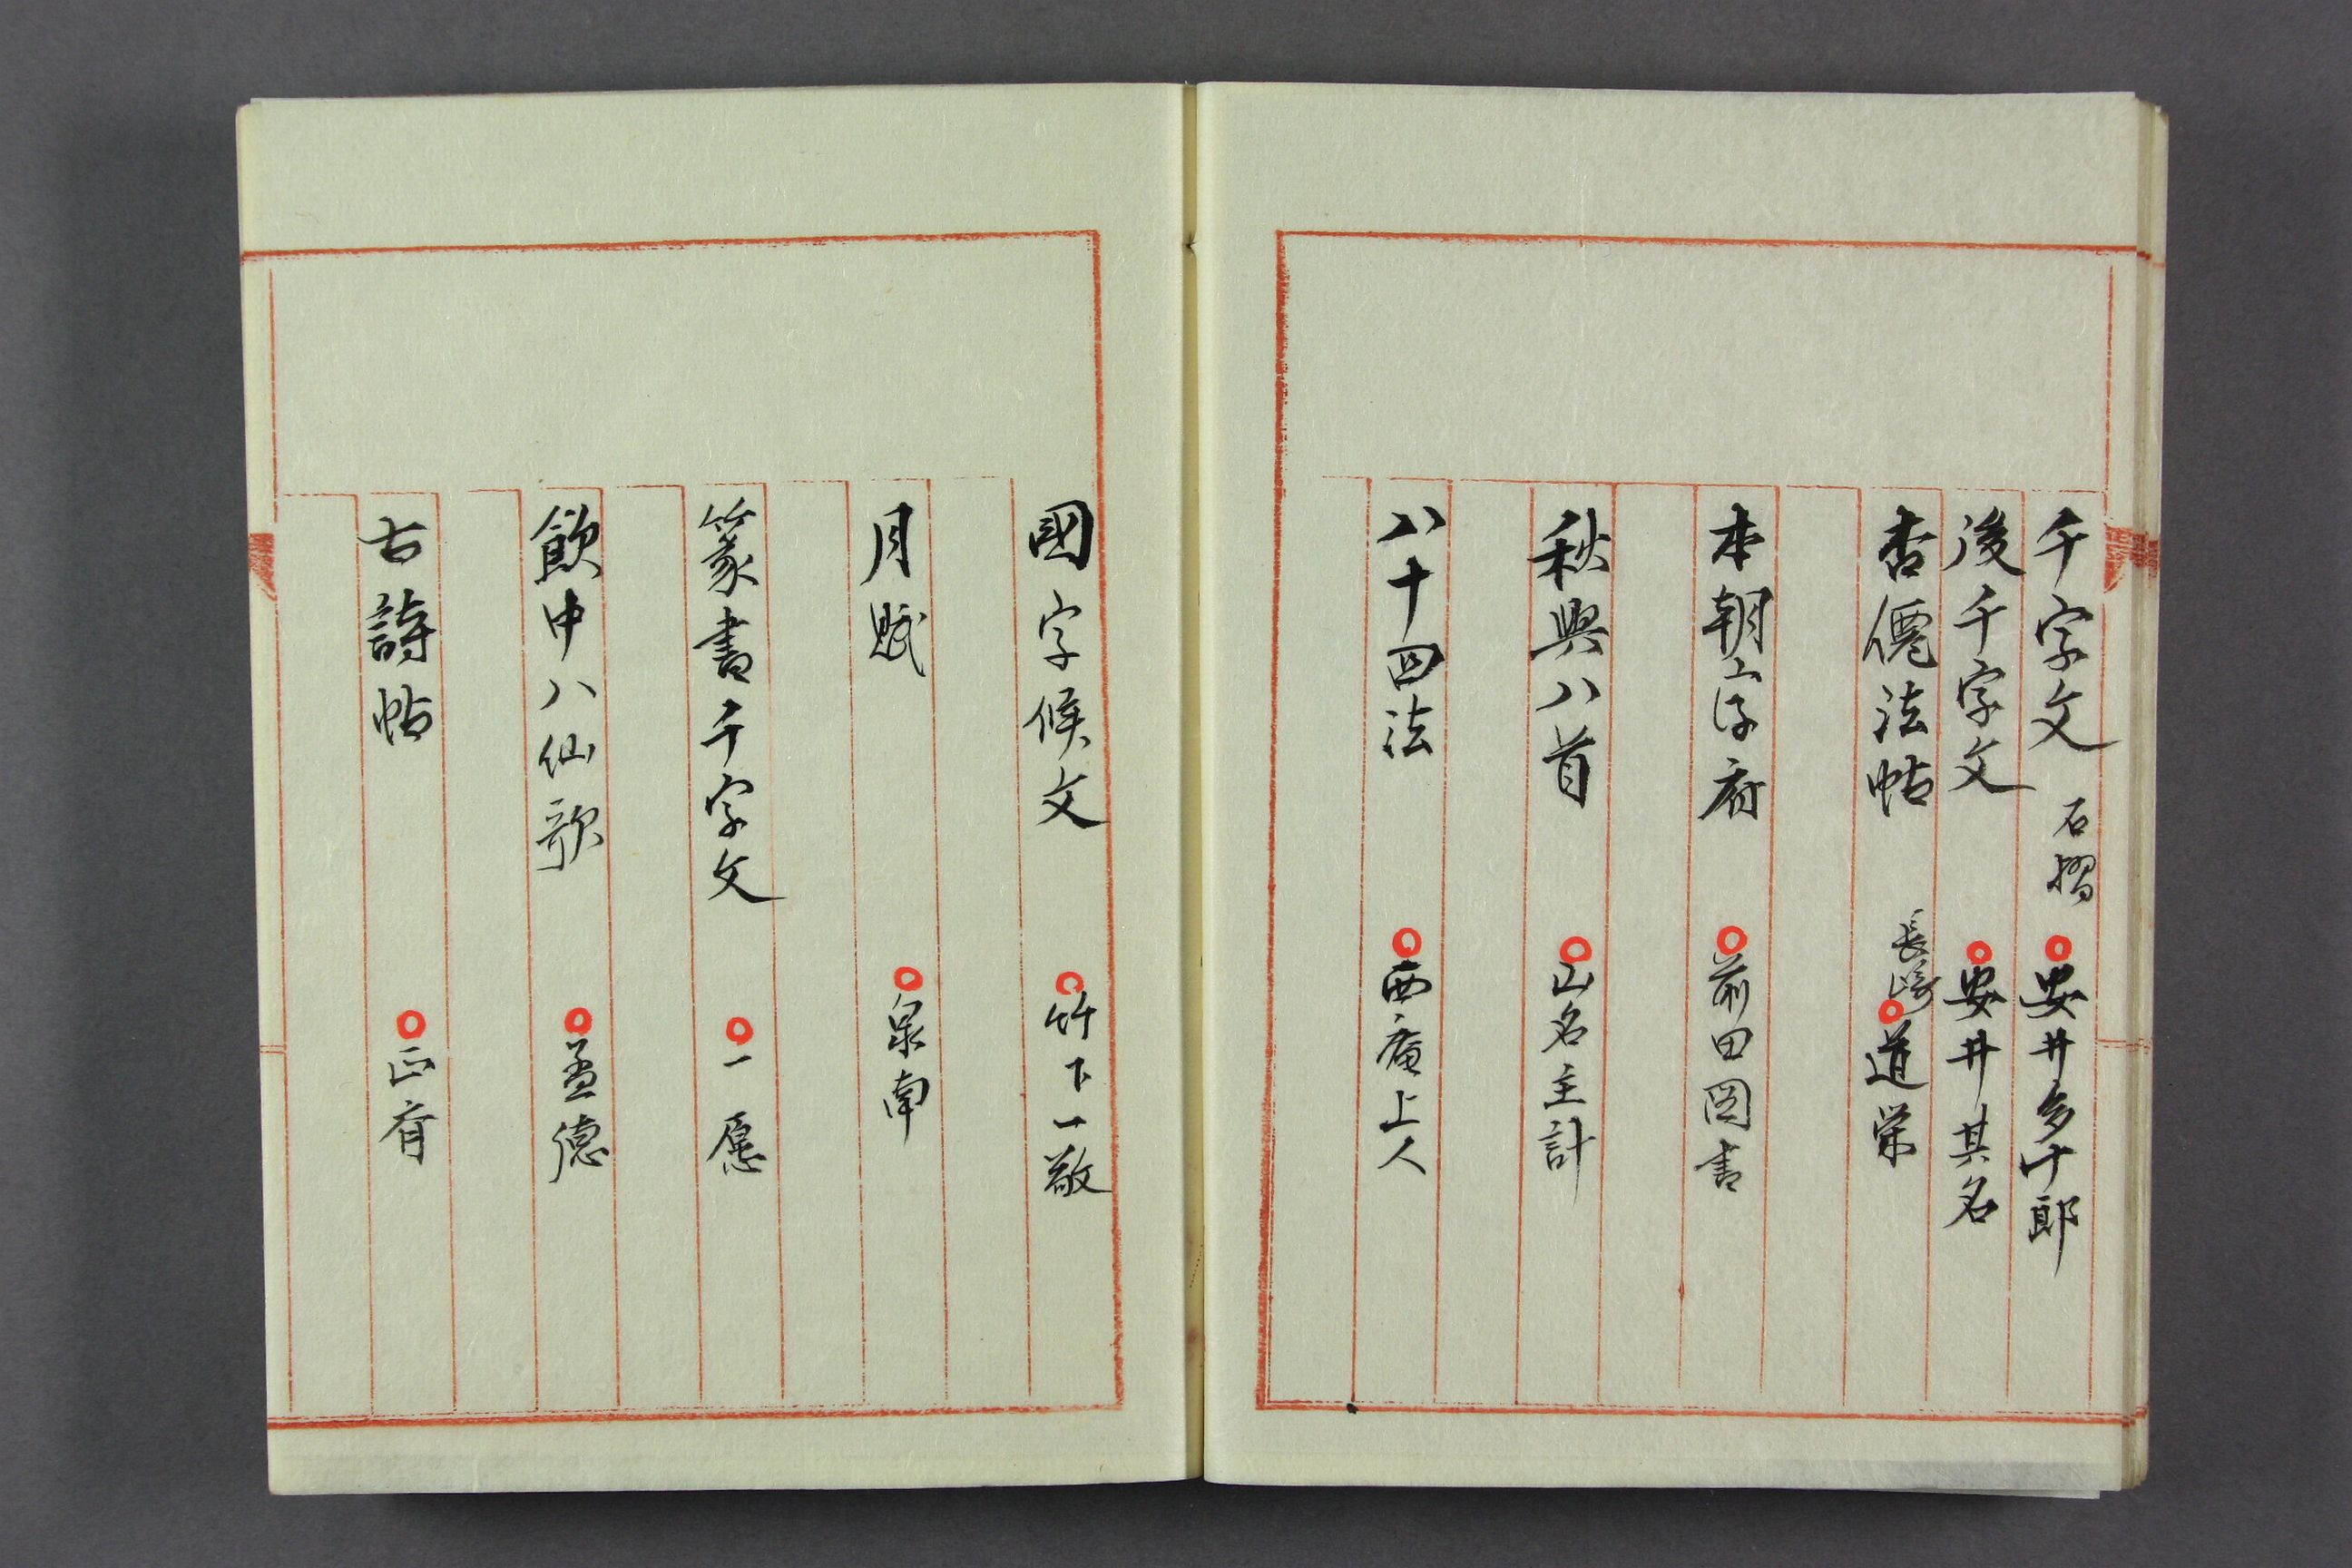 千字文 石摺 安井多十郎
後千字文 安井其名
杏僊法帖 長崎 道栄
本朝字府 前田図書
秋興八首 山名主計
八十四法 西庵上人
國字候文 竹下一敬
月賦 泉南
篆書千字文 一愿
飲中八仙歌 孟德
古詩帖 正脊